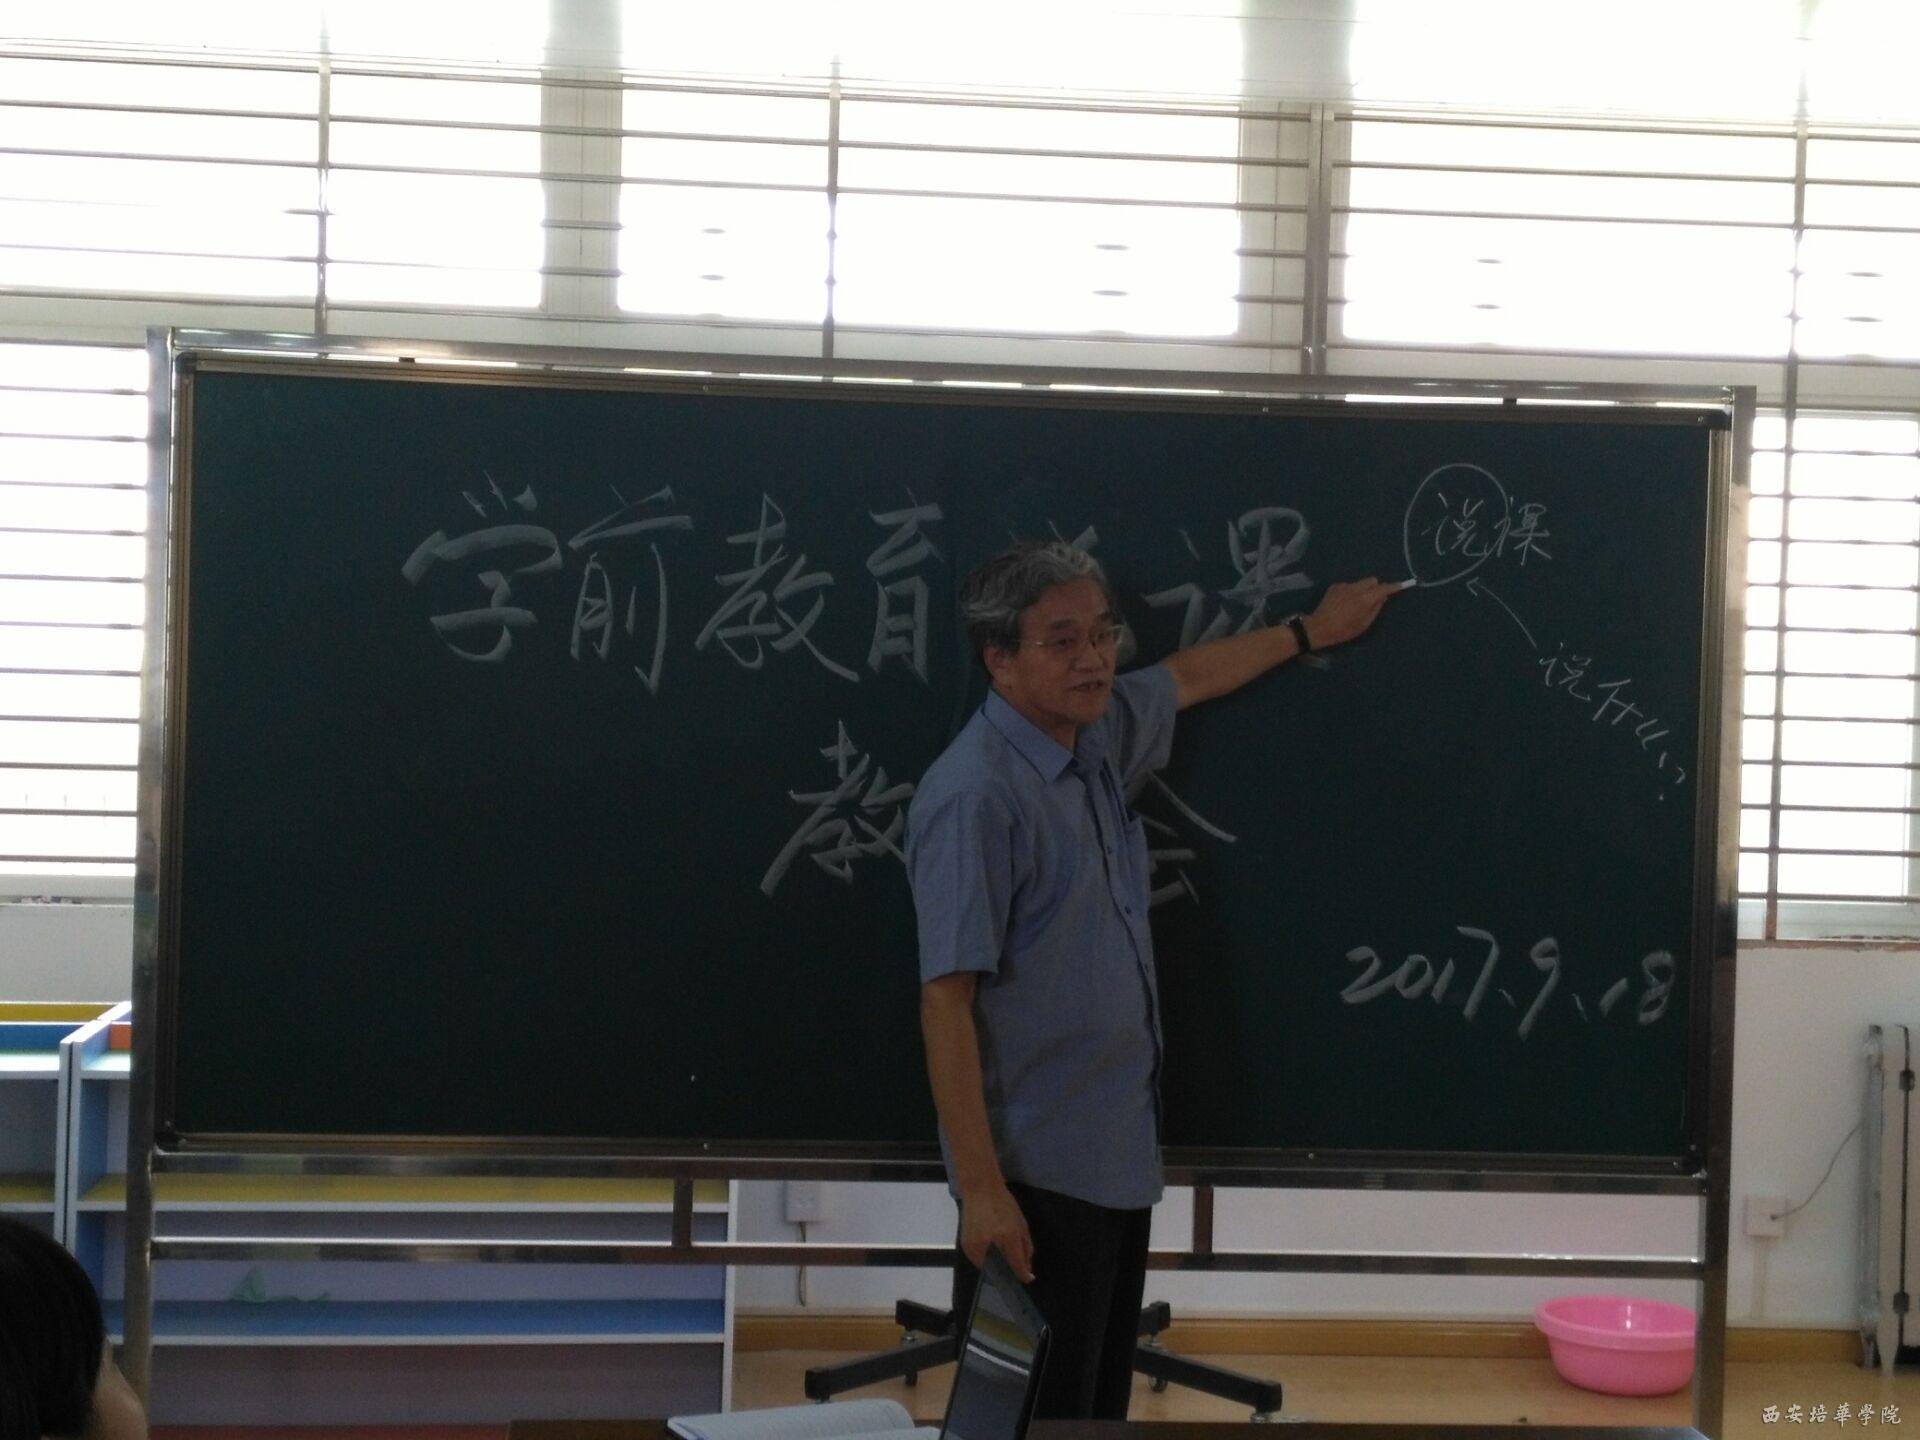 学前教育 课
教 会
说课
说什么?
2017.9.18
西安培華學院